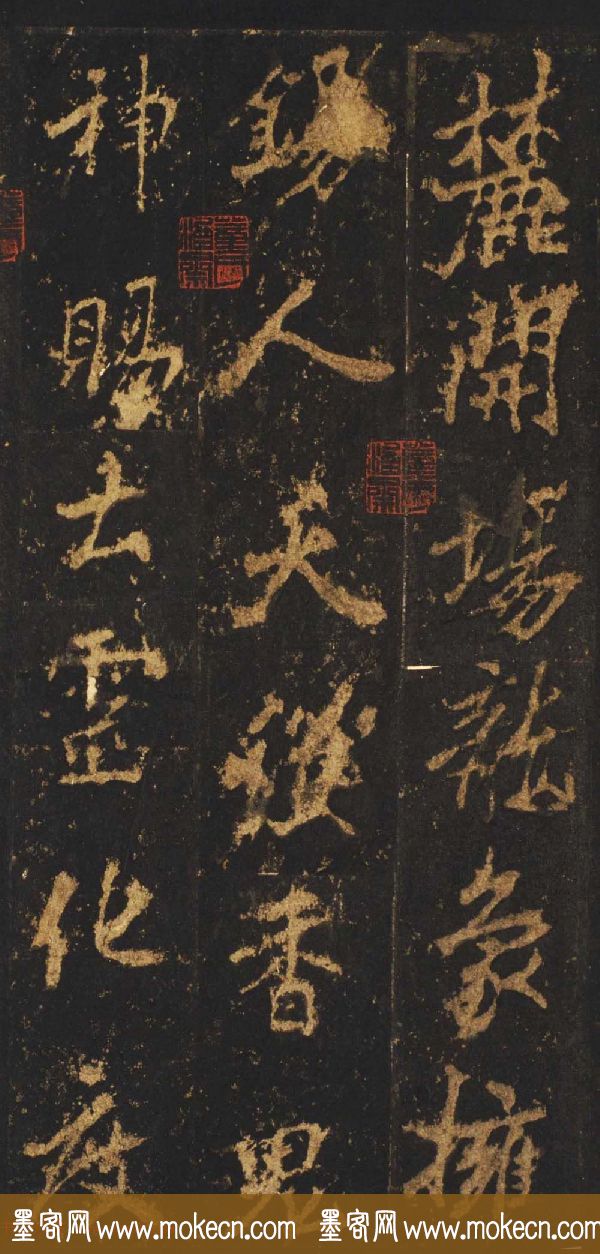 麓開場龍象擁
錫人天香
神賜去靈化度
墨客网 www.mokecn.com 墨客网 www.mokecn.com